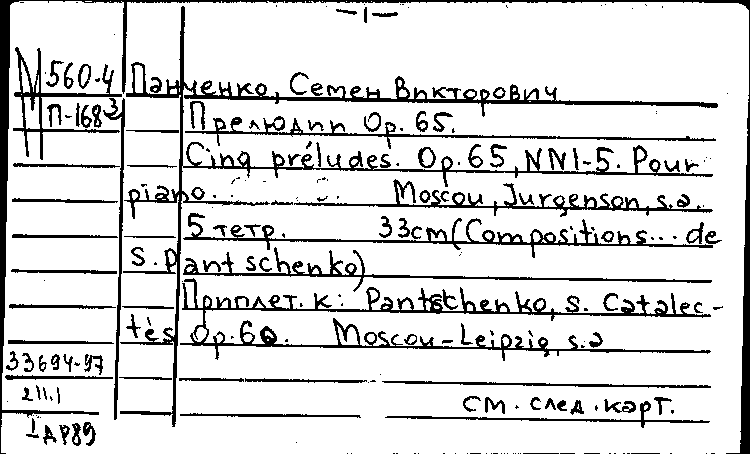 — 1 —
М 560-4 Панченко, Семен Викторович
П-168³ Прелюдии Op. 65.
Cinq préludes. Op. 65, NN1-5. Pour
piano. Moscou, Jurgenson, s.a.
5 тетр. 33cm (Compositions... de
S. Pantschenko)
Приплет. к: Pantschenko, S. Catalec-
tès Op. 60. Moscou-Leipzig, s.a
33694-97
211.1
см. след. карт.
I др89